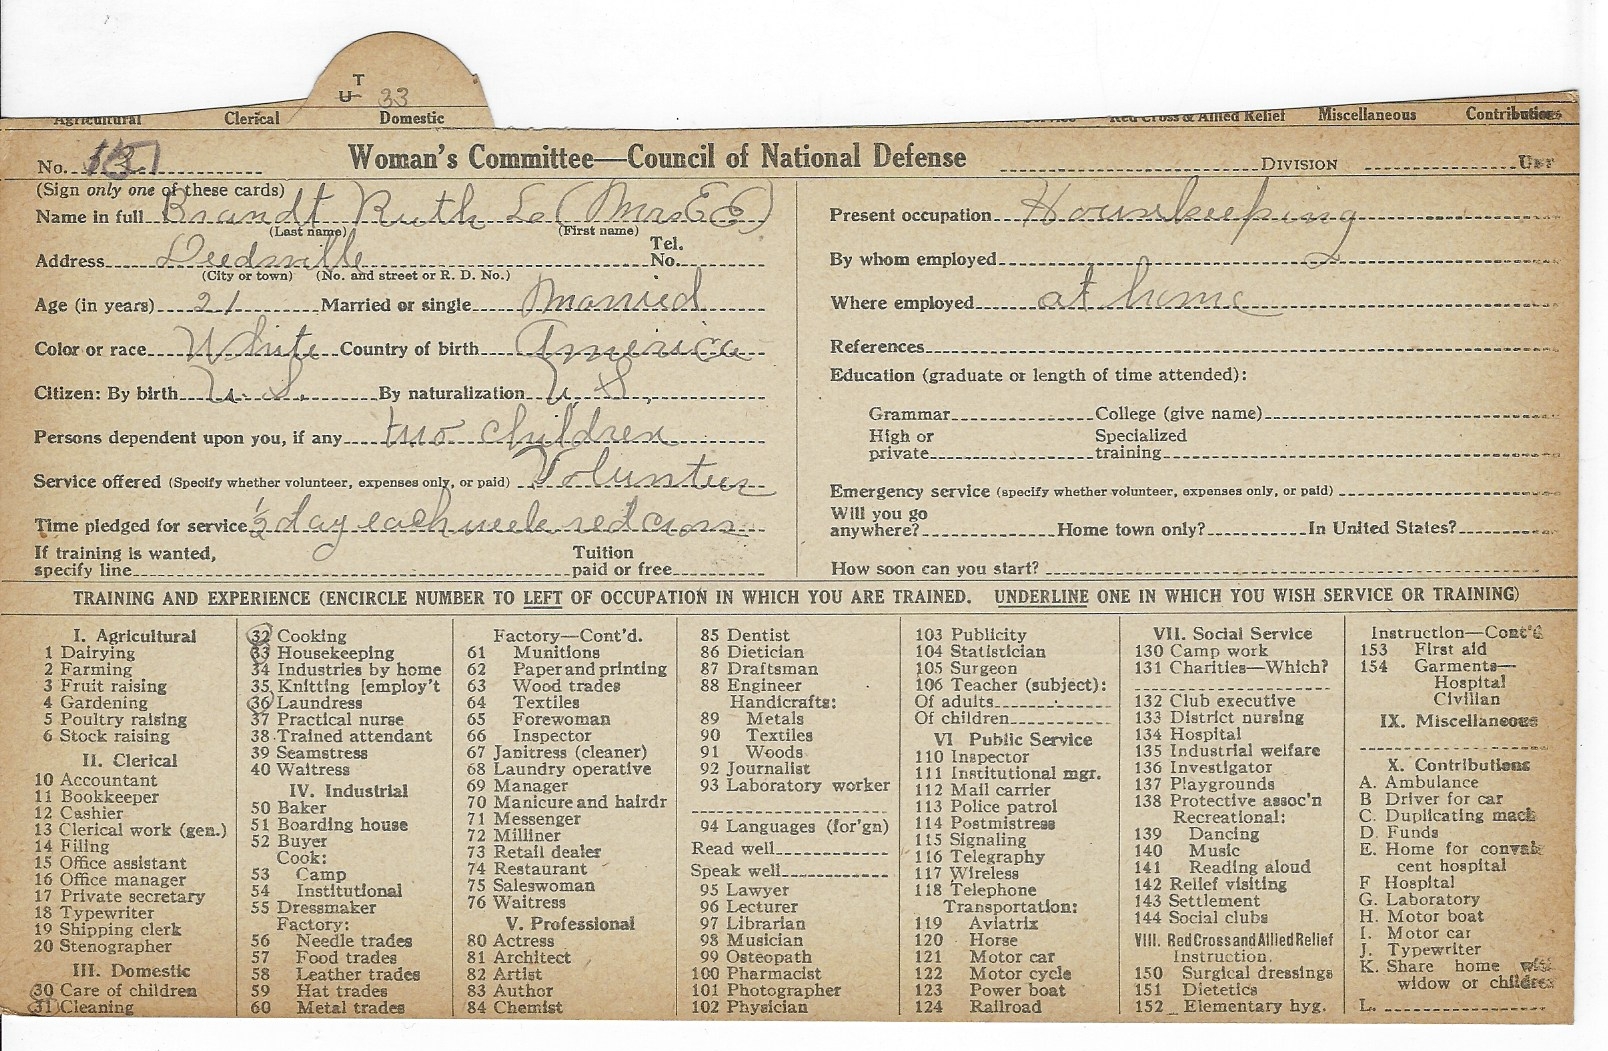 T
U 33
Agricultural Clerical Domestic Service Red Cross & Allied Relief Miscellaneous Contributions
No. 137
Woman's Committee—Council of National Defense DIVISION UNIT
(Sign only one of these cards)
Name in full Brandt Ruth Lo (Mrs E E)
(Last name) (First name)
Address Deedsville Tel. No.
(City or town) (No. and street or R. D. No.)
Age (in years) 21 Married or single Married
Color or race White Country of birth America
Citizen: By birth U. S. By naturalization U. S.
Persons dependent upon you, if any two children
Service offered (Specify whether volunteer, expenses only, or paid) Volunteer
Time pledged for service ½ day each week red cross
If training is wanted,
specify line Tuition paid or free
Present occupation Housekeeping
By whom employed
Where employed at home
References
Education (graduate or length of time attended):
Grammar College (give name)
High or private Specialized training
Emergency service (specify whether volunteer, expenses only, or paid)
Will you go anywhere? Home town only? In United States?
How soon can you start?
TRAINING AND EXPERIENCE (ENCIRCLE NUMBER TO LEFT OF OCCUPATION IN WHICH YOU ARE TRAINED. UNDERLINE ONE IN WHICH YOU WISH SERVICE OR TRAINING)
I. Agricultural
1 Dairying
2 Farming
3 Fruit raising
4 Gardening
5 Poultry raising
6 Stock raising
II. Clerical
10 Accountant
11 Bookkeeper
12 Cashier
13 Clerical work (gen.)
14 Filing
15 Office assistant
16 Office manager
17 Private secretary
18 Typewriter
19 Shipping clerk
20 Stenographer
III. Domestic
30 Care of children
31 Cleaning
32 Cooking
33 Housekeeping
34 Industries by home
35 Knitting [employ't
36 Laundress
37 Practical nurse
38 Trained attendant
39 Seamstress
40 Waitress
IV. Industrial
50 Baker
51 Boarding house
52 Buyer
Cook:
53 Camp
54 Institutional
55 Dressmaker
Factory:
56 Needle trades
57 Food trades
58 Leather trades
59 Hat trades
60 Metal trades
Factory—Cont'd.
61 Munitions
62 Paper and printing
63 Wood trades
64 Textiles
65 Forewoman
66 Inspector
67 Janitress (cleaner)
68 Laundry operative
69 Manager
70 Manicure and hairdr
71 Messenger
72 Milliner
73 Retail dealer
74 Restaurant
75 Saleswoman
76 Waitress
V. Professional
80 Actress
81 Architect
82 Artist
83 Author
84 Chemist
85 Dentist
86 Dietician
87 Draftsman
88 Engineer
Handicrafts:
89 Metals
90 Textiles
91 Woods
92 Journalist
93 Laboratory worker
94 Languages (for'gn)
Read well
Speak well
95 Lawyer
96 Lecturer
97 Librarian
98 Musician
99 Osteopath
100 Pharmacist
101 Photographer
102 Physician
103 Publicity
104 Statistician
105 Surgeon
106 Teacher (subject):
Of adults
Of children
VI Public Service
110 Inspector
111 Institutional mgr.
112 Mail carrier
113 Police patrol
114 Postmistress
115 Signaling
116 Telegraphy
117 Wireless
118 Telephone
Transportation:
119 Aviatrix
120 Horse
121 Motor car
122 Motor cycle
123 Power boat
124 Railroad
VII. Social Service
130 Camp work
131 Charities—Which?
132 Club executive
133 District nursing
134 Hospital
135 Industrial welfare
136 Investigator
137 Playgrounds
138 Protective assoc'n
Recreational:
139 Dancing
140 Music
141 Reading aloud
142 Relief visiting
143 Settlement
144 Social clubs
VIII. Red Cross and Allied Relief
Instruction.
150 Surgical dressings
151 Dietetics
152 Elementary hyg.
Instruction—Cont'd
153 First aid
154 Garments—
Hospital
Civilian
IX. Miscellaneous
X. Contributions
A. Ambulance
B Driver for car
C. Duplicating mach
D. Funds
E. Home for convales
cent hospital
F Hospital
G. Laboratory
H. Motor boat
I. Motor car
J. Typewriter
K. Share home with
widow or children
L.